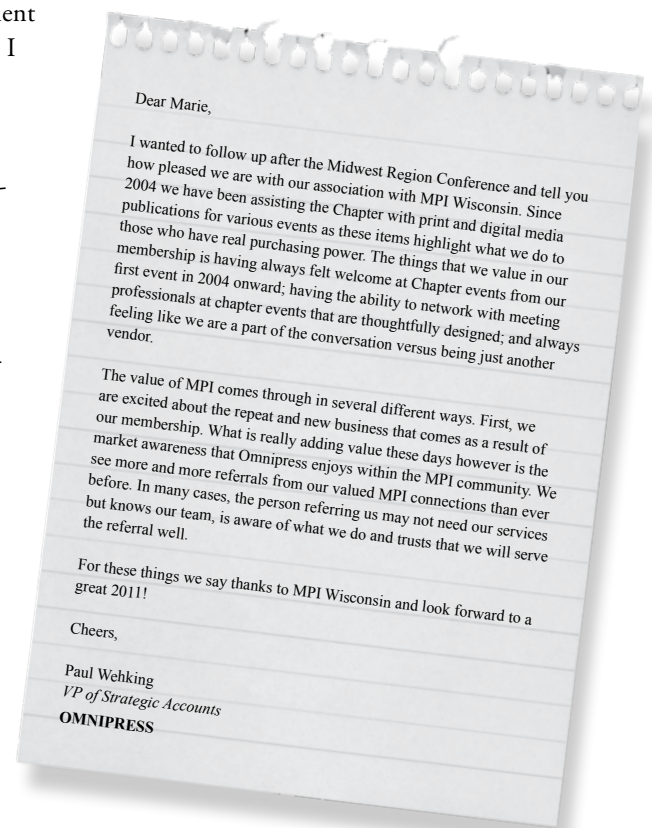 ent
I
Dear Marie,
I wanted to follow up after the Midwest Region Conference and tell you
how pleased we are with our association with MPI Wisconsin. Since
2004 we have been assisting the Chapter with print and digital media
publications for various events as these items highlight what we do to
those who have real purchasing power. The things that we value in our
membership is having always felt welcome at Chapter events from our
first event in 2004 onward; having the ability to network with meeting
professionals at chapter events that are thoughtfully designed; and always
feeling like we are a part of the conversation versus being just another
vendor.
The value of MPI comes through in several different ways. First, we
are excited about the repeat and new business that comes as a result of
our membership. What is really adding value these days however is the
market awareness that Omnipress enjoys within the MPI community. We
see more and more referrals from our valued MPI connections than ever
before. In many cases, the person referring us may not need our services
but knows our team, is aware of what we do and trusts that we will serve
the referral well.
For these things we say thanks to MPI Wisconsin and look forward to a
great 2011!
Cheers,
Paul Wehking
VP of Strategic Accounts
OMNIPRESS